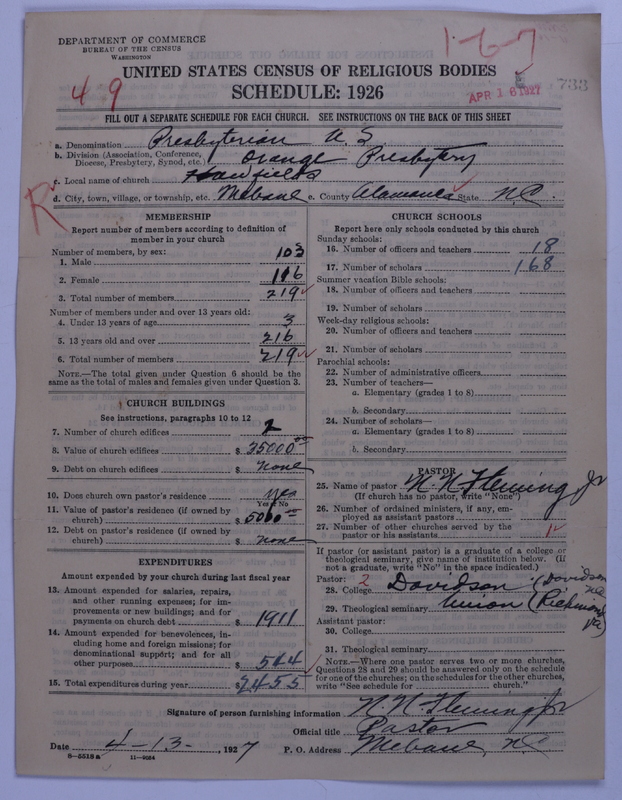 DEPARTMENT OF COMMERCE
BUREAU OF THE CENSUS
WASHINGTON
1-6-7
49
UNITED STATES CENSUS OF RELIGIOUS BODIES
SCHEDULE: 1926
APR 16 1927
733
FILL OUT A SEPARATE SCHEDULE FOR EACH CHURCH. SEE INSTRUCTIONS ON THE BACK OF THIS SHEET
a. Denomination Presbyterian U S
b. Division (Association, Conference, Diocese, Presbytery, Synod, etc.) Orange Presbytery
c. Local name of church Hawfields
d. City, town, village, or township, etc. Mebane e. County Alamance State N.C.
R
MEMBERSHIP
Report number of members according to definition of
member in your church
Number of members, by sex:
1. Male 103
2. Female 116
3. Total number of members 219
Number of members under and over 13 years old:
4. Under 13 years of age 3
5. 13 years old and over 216
6. Total number of members 219
NOTE.—The total given under Question 6 should be the
same as the total of males and females given under Question 3.
CHURCH BUILDINGS
See instructions, paragraphs 10 to 12
7. Number of church edifices 2
8. Value of church edifices $ 35000.00
9. Debt on church edifices $ none
10. Does church own pastor's residence yes
Yes or No
11. Value of pastor's residence (if owned by
church) $ 5000.00
12. Debt on pastor's residence (if owned by
church) $ none
EXPENDITURES
Amount expended by your church during last fiscal year
13. Amount expended for salaries, repairs,
and other running expenses; for im-
provements or new buildings; and for
payments on church debt $ 1911
14. Amount expended for benevolences, in-
cluding home and foreign missions; for
denominational support; and for all
other purposes $ 544
15. Total expenditures during year $ 2455
CHURCH SCHOOLS
Report here only schools conducted by this church
Sunday schools:
16. Number of officers and teachers 18
17. Number of scholars 168
Summer vacation Bible schools:
18. Number of officers and teachers
19. Number of scholars
Week-day religious schools:
20. Number of officers and teachers
21. Number of scholars
Parochial schools:
22. Number of administrative officers
23. Number of teachers—
a. Elementary (grades 1 to 8)
b. Secondary
24. Number of scholars—
a. Elementary (grades 1 to 8)
b. Secondary
PASTOR
25. Name of pastor N. N. Fleming Jr
(If church has no pastor, write "None")
26. Number of ordained ministers, if any, em-
ployed as assistant pastors
27. Number of other churches served by the
pastor or his assistants 1
If pastor (or assistant pastor) is a graduate of a college or
theological seminary, give name of institution below. (If
not a graduate, write "No" in the space indicated.)
Pastor: 2
28. College Davidson (Davidson N.C.
29. Theological seminary Union (Richmond Va)
Assistant pastor:
30. College
31. Theological seminary
NOTE.—Where one pastor serves two or more churches,
Questions 28 and 29 should be answered only on the schedule
for one of the churches; on the schedules for the other churches,
write "See schedule for church."
Signature of person furnishing information N. N. Fleming Jr
Official title Pastor
Date 4-13-, 1927 P. O. Address Mebane, N.C.
8—5518a 11—9084